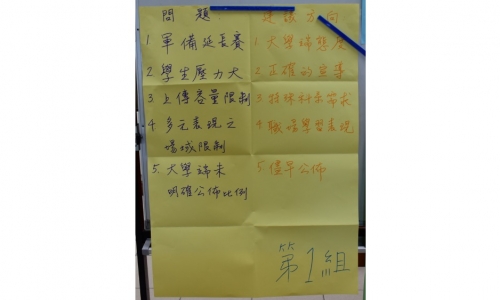 問題
1 軍備延長賽
2 學生壓力大
3 上傳容量限制
4 多元表現之
場域限制
5. 大學端未
明確公佈比例
建議方向
1 大學端態度
2 正確的宣導
3 特殊科系需求
4 職場學習表現
5 儘早公佈
第1組